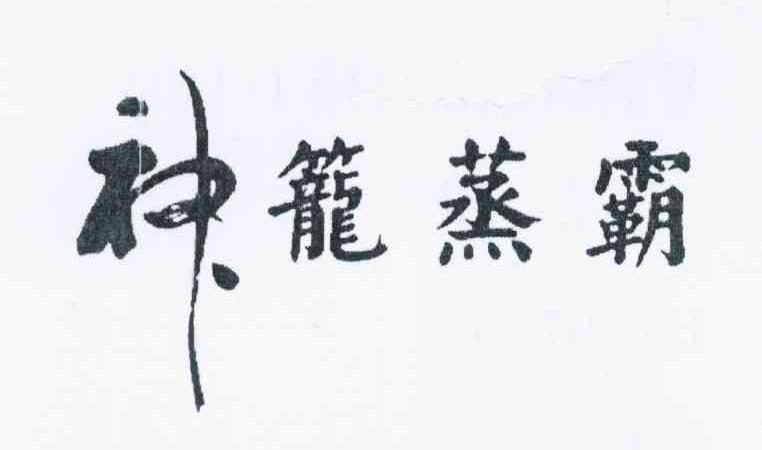 神籠蒸霸